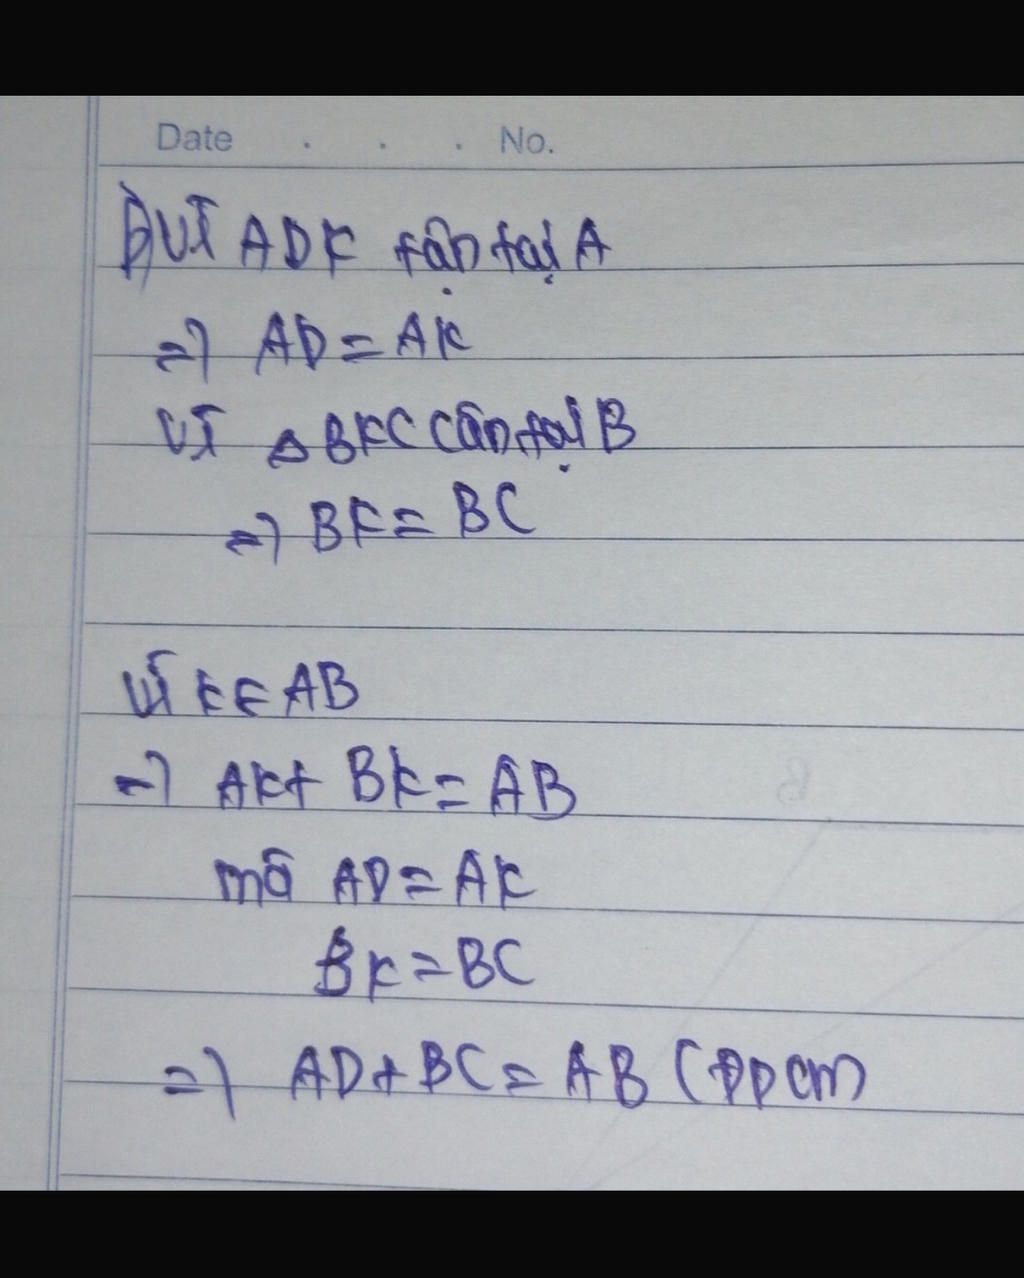 Date . . . No.
b, Vì ADK cân tại A
=> AD = AK
Vì Δ BKC cân tại B
=> BK = BC
Vì K ∈ AB
=> AK + BK = AB
mà AD = AK
BK = BC
=> AD + BC = AB (Đpcm